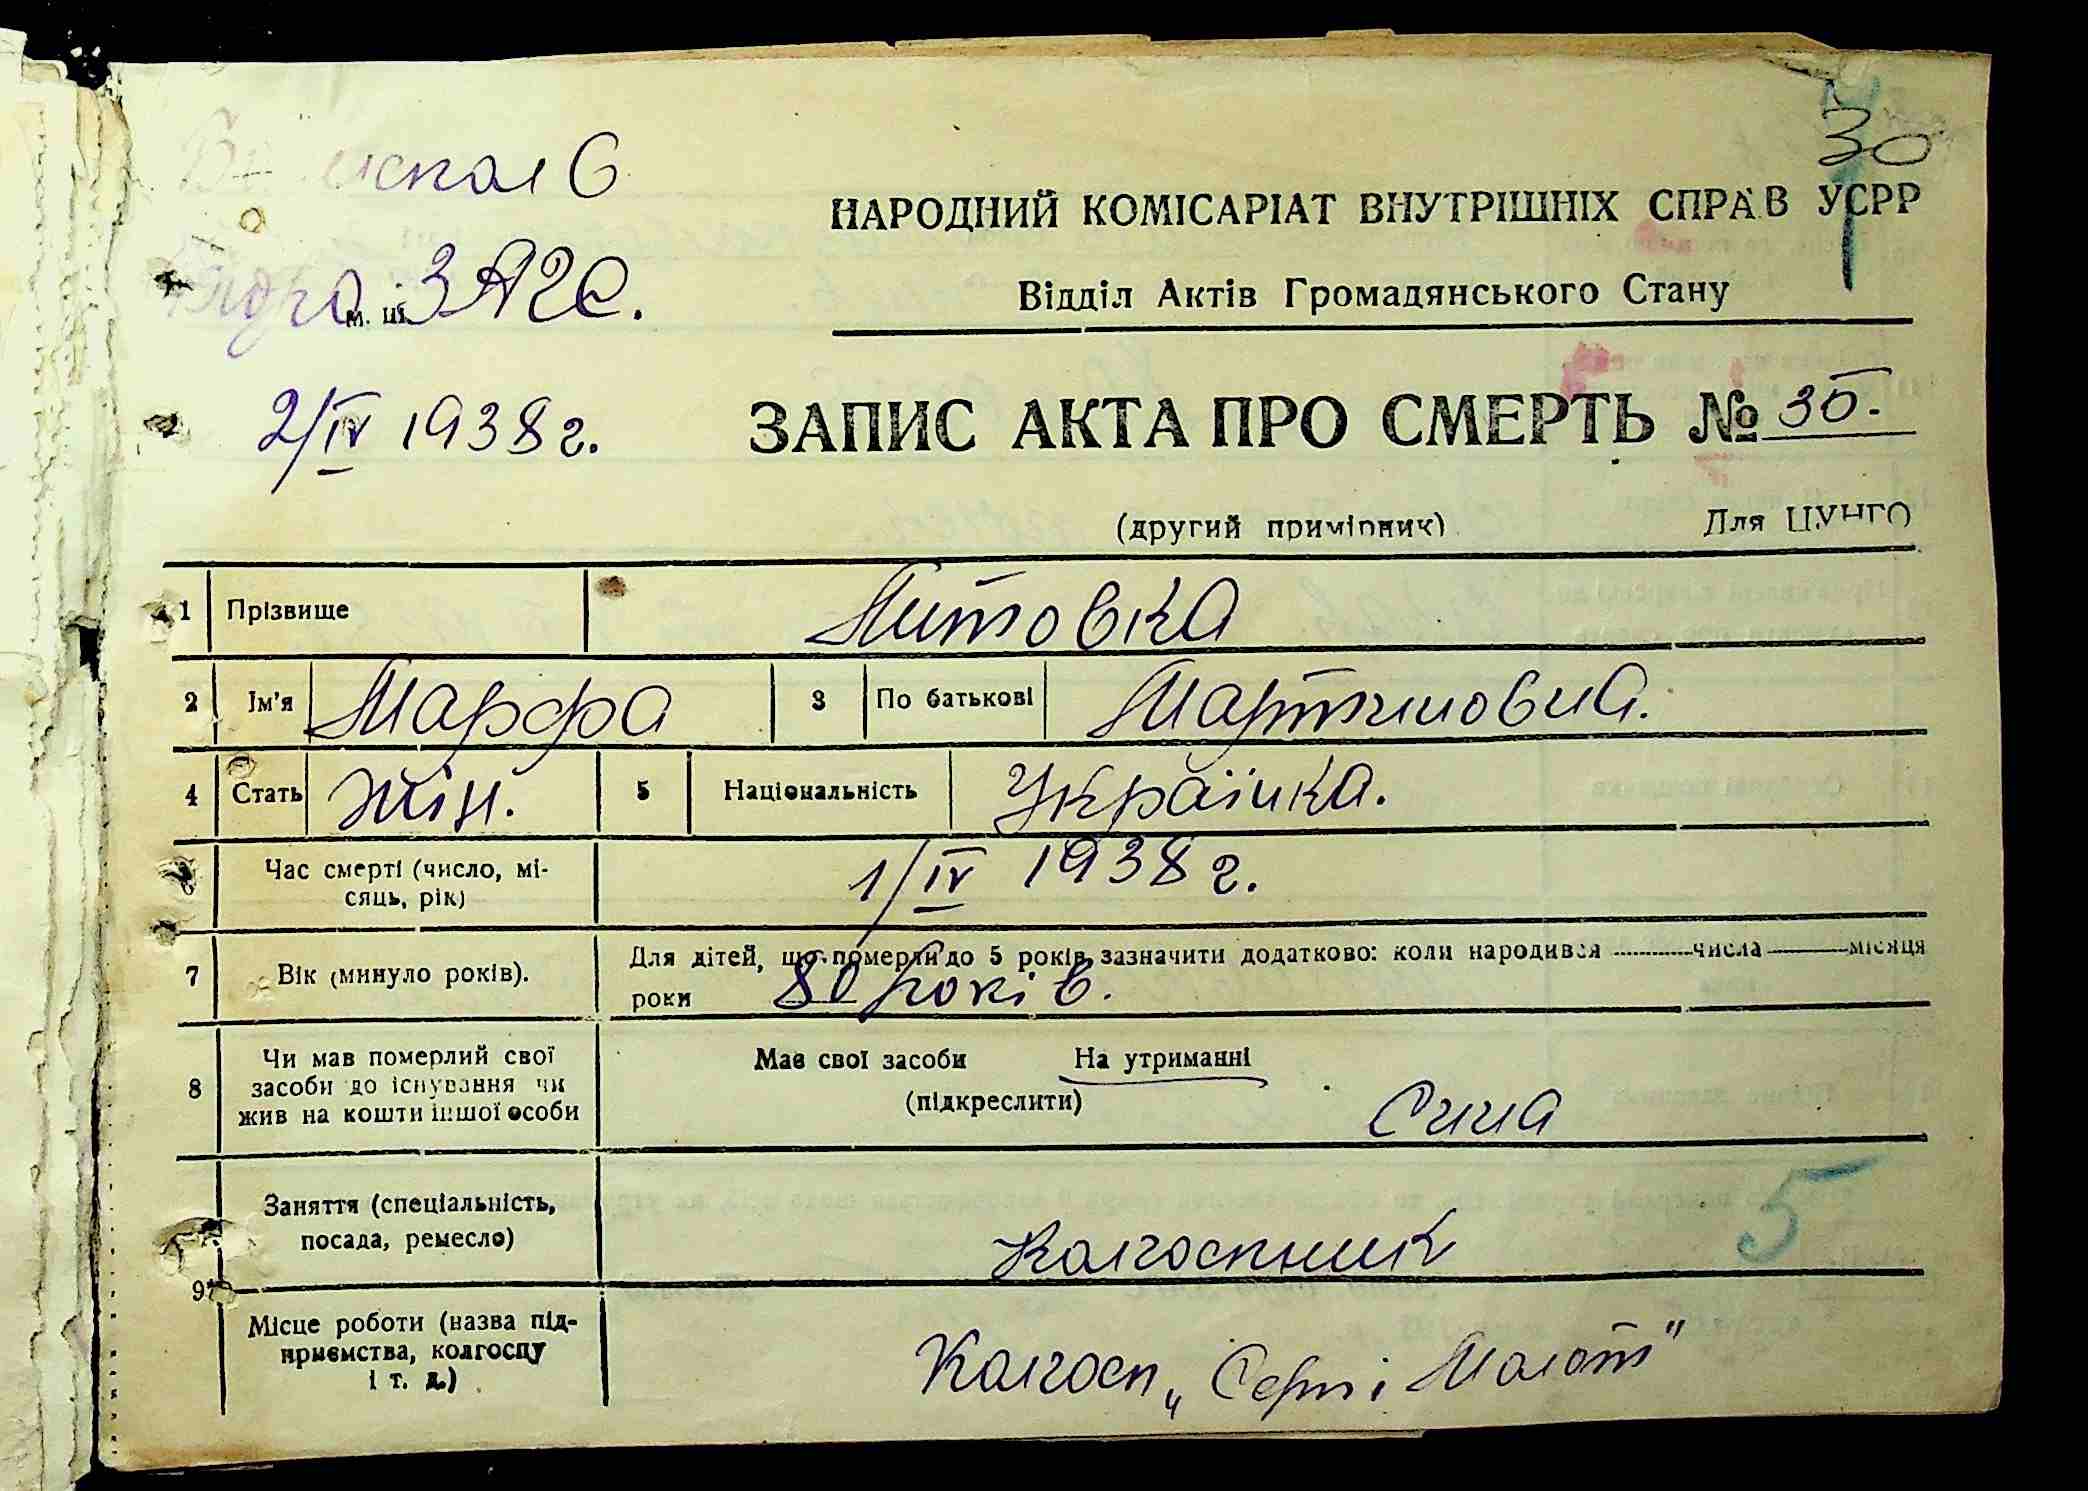 30
НАРОДНИЙ КОМІСАРІАТ ВНУТРІШНІХ СПРАВ УСРР
ЗАГС.
м.
Відділ Актів Громадянського Стану
2/IV 1938 г.
ЗАПИС АКТА ПРО СМЕРТЬ № 35.
(другий примірник)
Для ЦУНГО
1 Прізвище Литовка
2 Ім'я Марфа 3 По батькові Мартиновна.
4 Стать жін. 5 Національність Українка.
Час смерті (число, мі-
сяць, рік) 1/IV 1938 г.
7 Вік (минуло років). Для дітей, що померли до 5 років, зазначити додатково: коли народився числа місяця
роки 80 років.
8 Чи мав померлий свої
засоби до існування чи
жив на кошти іншої особи
Має свої засоби На утриманні
(підкреслити)
Сина
Заняття (спеціальність,
посада, ремесло) Колгоспник
5
9
Місце роботи (назва під-
приємства, колгоспу
і т. д.)
Колгосп „Серп і Молот"